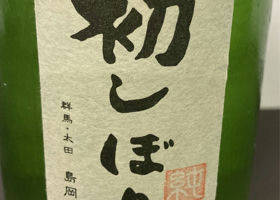 初しぼり
群馬・太田 島岡
純